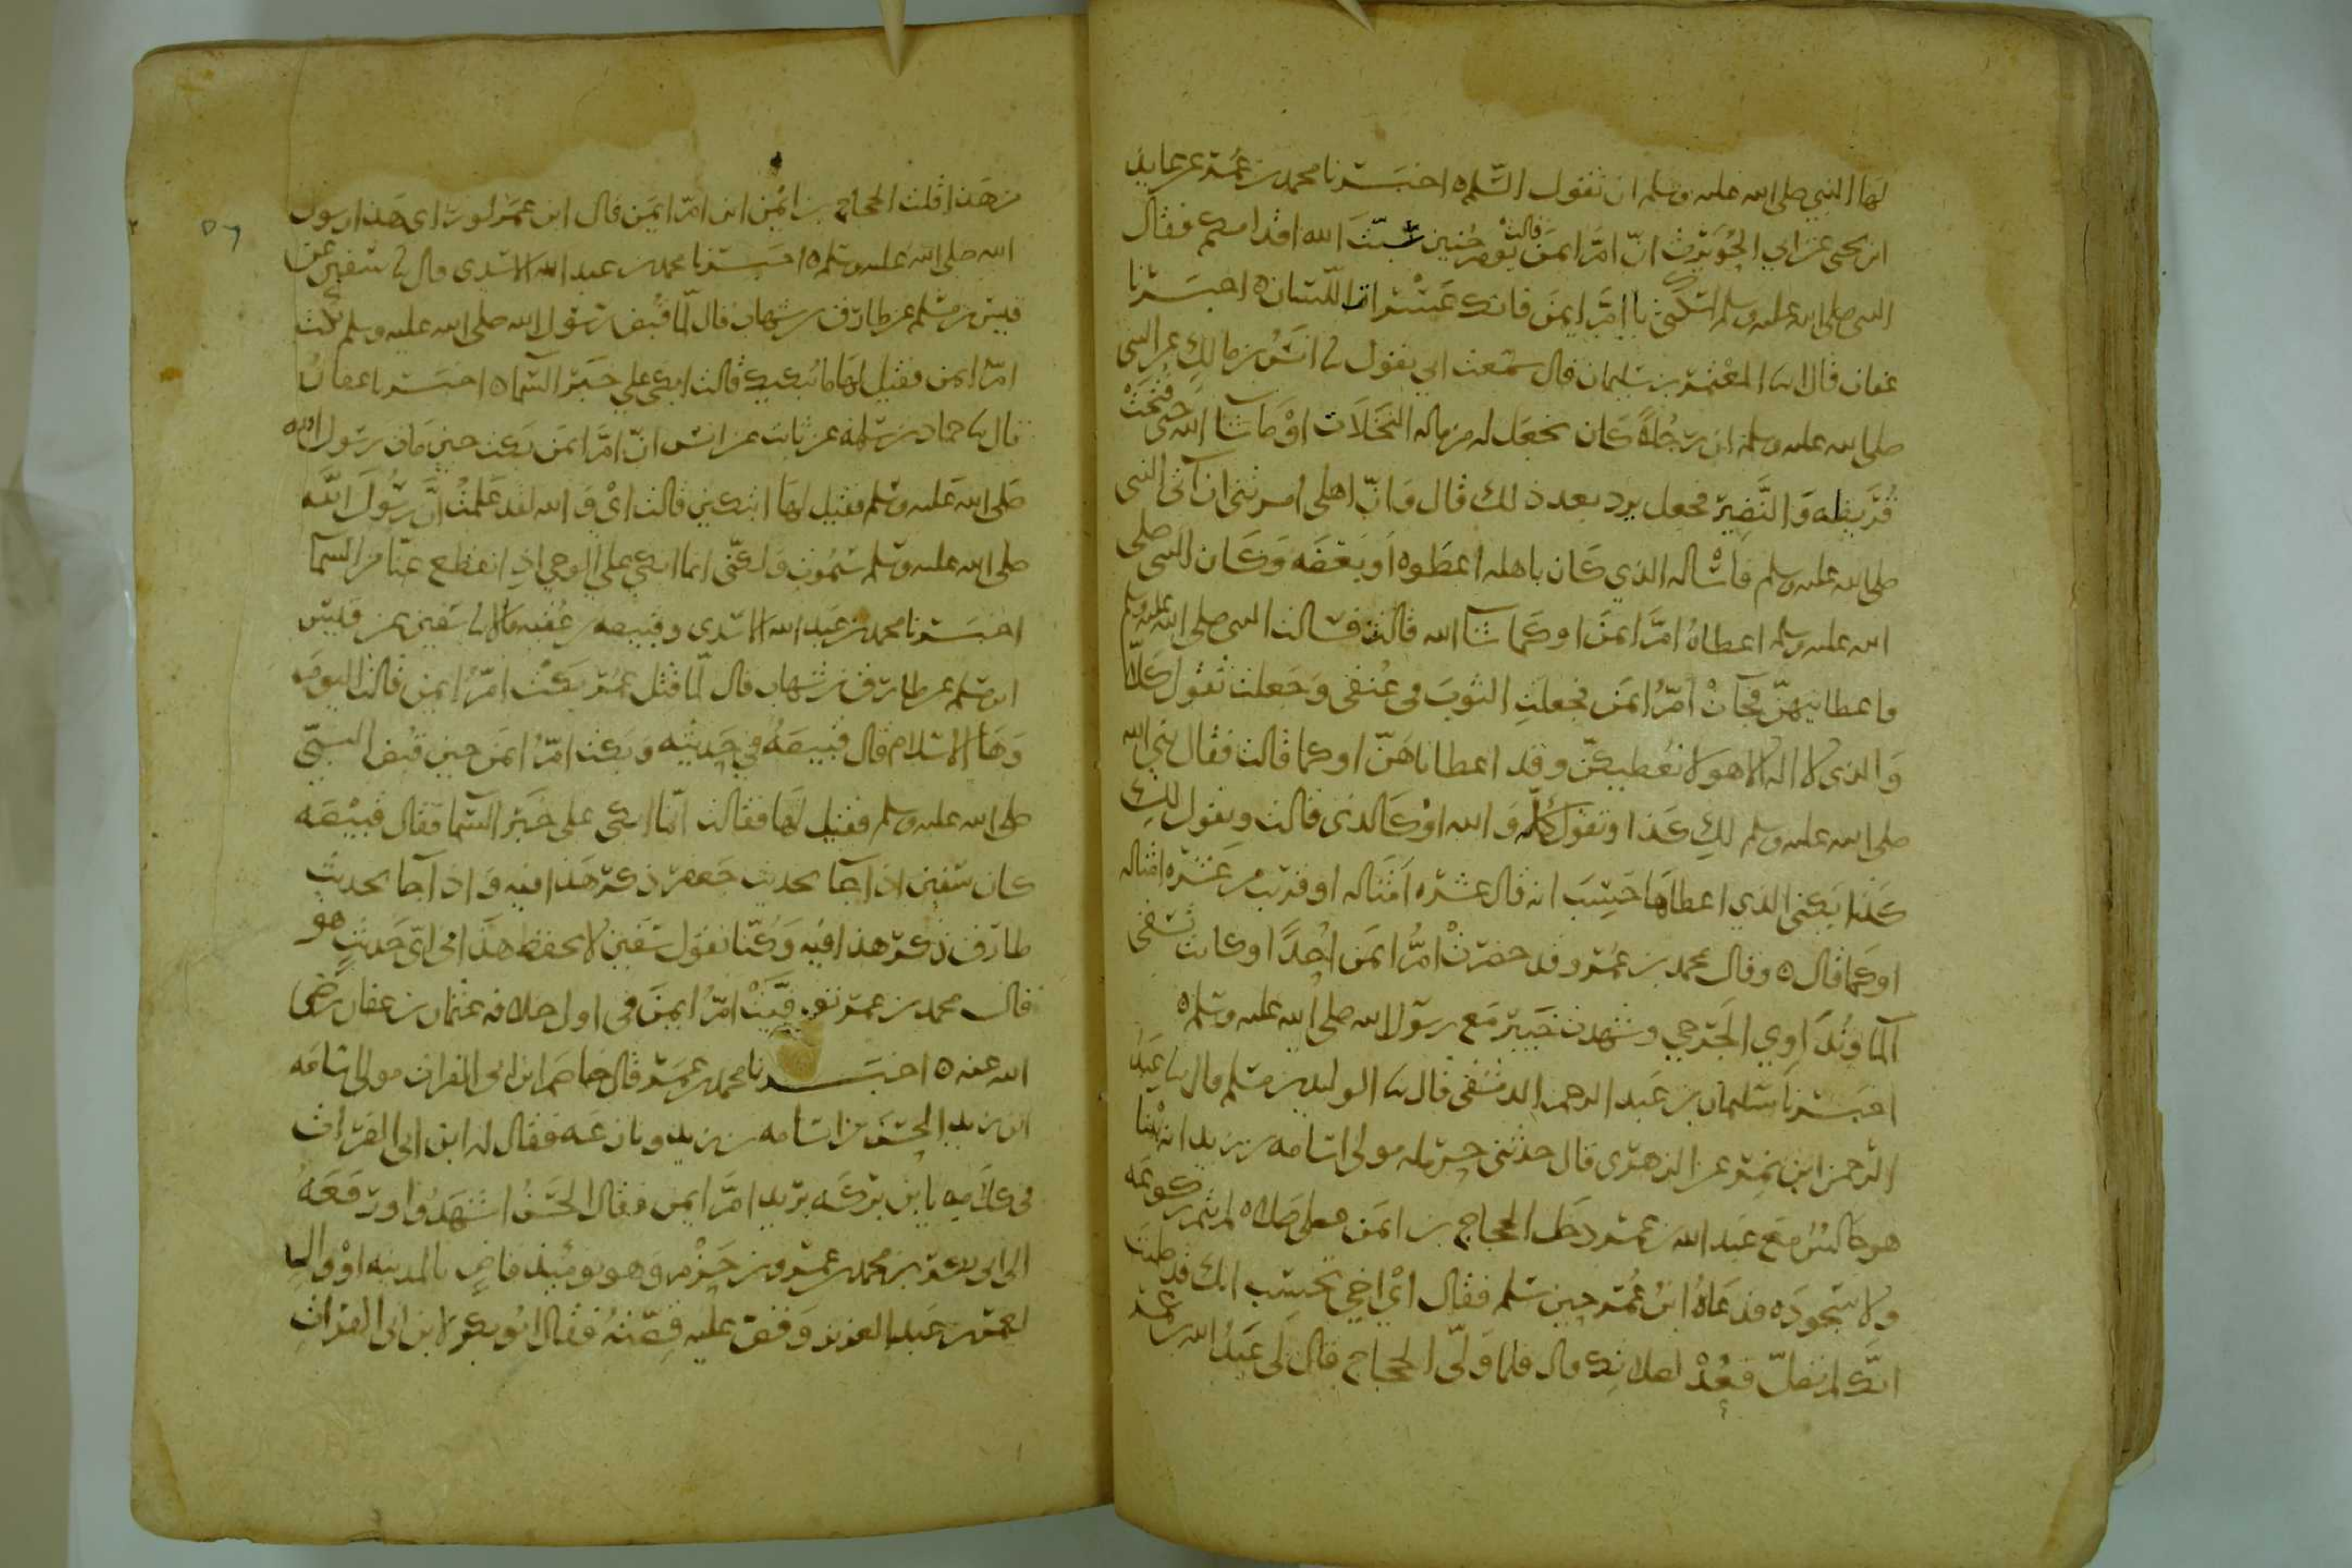 لها النبي صلى الله عليه وسلم ان تقول السلم ه اخبرنا محمد بن عمر عن عايذ
ابن يحيى عن ابي الحويرث ان ام ايمن قالت يوم حنين سبت الله اقدامكم فقال
النبي صلى الله عليه وسلم اسكتي يا ام ايمن فانك عسرا اللسان ه اخبرنا
عفان قال نا المعتمر بن سليمان قال سمعت ابي يقول نا انس بن مالك عن النبي
صلى الله عليه وسلم ان رجلا كان يجعل له من ماله النخلات او ما شا الله حتى فتحت
قريظه والنضير فجعل يرد بعد ذلك قال وان اهلي امرتني ان آتي النبي
صلى الله عليه وسلم فاساله الذي كان اهله اعطوه او بعضه وكان النبي صلى
الله عليه وسلم اعطاه ام ايمن او كما شا الله قالت فسالت النبي صلى الله عليه وسلم
فاعطانيهن فجات ام ايمن فجعلت الثوب في عنقي وجعلت تقول كلا
والذي لا اله الا هو لا نعطيكهن وقد اعطاناهن او كما قالت فقال نبي الله
صلى الله عليه وسلم لك كذا وتقول كلا والله او كالذي قالت ويقول لك
كذا يعني الذي اعطاها حسبت انه قال عشره امثاله او قريب من عشره امثاله
او كما قال ه وقال محمد بن عمر وقد حضرت ام ايمن احدا وكانت تسقي
الما وتداوي الجرحى وشهدت خيبر مع رسول الله صلى الله عليه وسلم ه
اخبرنا سليمان بن عبد الرحمن الدمشقي قال نا الوليد بن مسلم قال نا عبد
الرحمن ابن نمر عن الزهري قال حدثني حرمله مولى اسامه بن زيد انه بينا
هو جالس مع عبد الله بن عمر دخل الحجاج بن ايمن فصلى صلاه لم يتم ركوعه
ولا سجوده فدعاه ابن عمر حين سلم فقال اي اخي تحسب انك قد صليت
انك لم تصل فعد لصلاتك قال فلما ولى الحجاج قال لي عبد الله بن عمر
من هذا قلت الحجاج بن ايمن ابن ام ايمن قال ابن عمر لو راى هذا رسول
الله صلى الله عليه وسلم ه اخبرنا محمد بن عبد الله الاسدي قال نا سفين عن
قيس بن مسلم عن طارق بن شهاب قال لما قبض رسول الله صلى الله عليه وسلم بكت
ام ايمن فقيل لها ما يبكيك قالت ابكي على خبر السما ه اخبرنا عفان
قال نا حماد بن سلمه عن ثابت عن انس ان ام ايمن بكت حين مات رسول الله
صلى الله عليه وسلم فقيل لها اتبكين قالت اي والله لقد علمت ان رسول الله
صلى الله عليه وسلم سيموت ولكني انما ابكي على الوحي اذ انقطع عنا من السما
اخبرنا محمد بن عبد الله الاسدي وقبيصه بن عقبه قالا نا سفين عن قيس
ابن مسلم عن طارق بن شهاب قال لما قتل عمر بكت ام ايمن قالت اليوم
وها الاسلام قال قبيصه في حديثه وبكت ام ايمن حين قبض النبي
صلى الله عليه وسلم فقيل لها فقالت انما ابكي على خبر السما فقال قبيصه
كان سفين اذا جا بحديث جعفر ذكر هذا فيه واذا جا بحديث
طارق ذكر هذا فيه وكنا نقول سفين لا يحفظ هذا في اي حديث هو
قال محمد بن عمر توفيت ام ايمن في اول خلافه عثمان بن عفان رضي
الله عنه ه اخبرنا محمد بن عمر قال خاصم ابن ابي الفرات مولى اسامه
ابن زيد الحسن بن اسامه بن زيد ونازعه فقال له ابن ابي الفرات
في كلامه يا بن بركه يريد ام ايمن فقال الحسن اشهدوا ورفعه
الى ابي بكر بن محمد بن عمرو بن حزم وهو يومئذ قاض بالمدينه او وال
لعمر بن عبد العزيز وقص عليه قصته فقال ابو بكر لابن ابي الفرات